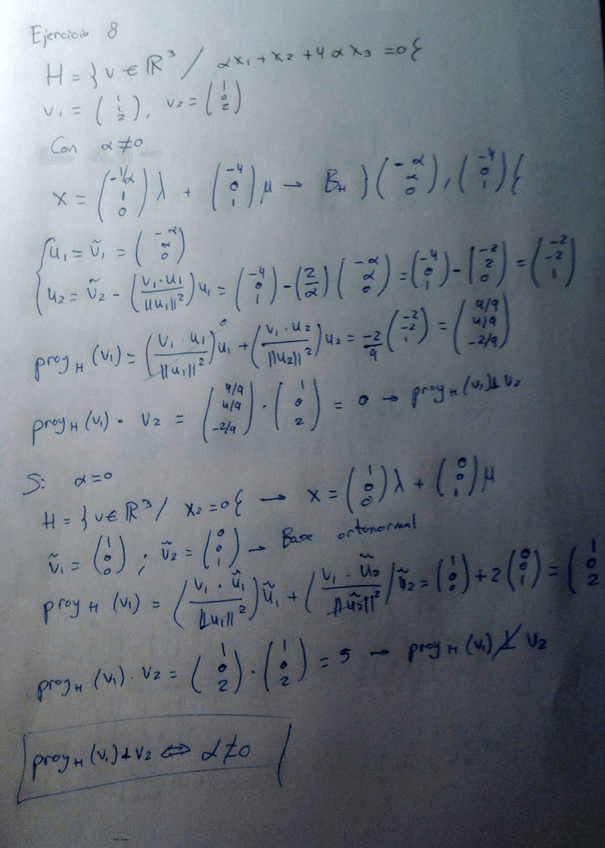 Ejercicio 8
H = { v ∈ ℝ³ / αx₁ + x₂ + 4αx₃ = 0 {
v₁ = (1 1 2), v₂ = (1 0 2)
Con α ≠ 0
x = (-1/α 1 0) λ + (-4 0 1) μ → B_H } (-α α 0), (-4 0 1) {
{ u₁ = ṽ₁ = (-α α 0)
u₂ = ṽ₂ - (v₁ · u₁ / ||u₁||²) u₁ = (-4 0 1) - (2/α) (-α α 0) = (-4 0 1) - (-2 2 0) = (-2 -2 1)
proy_H (v₁) = (v₁ · u₁ / ||u₁||²)⁰ u₁ + (v₁ · u₂ / ||u₂||²) u₂ = -2/9 (-2 -2 1) = (4/9 4/9 -2/9)
proy_H (v₁) · v₂ = (4/9 4/9 -2/9) · (1 0 2) = 0 → proy_H (v₁) ⊥ v₂
Si α = 0
H = { v ∈ ℝ³ / x₂ = 0 { → x = (1 0 0) λ + (0 0 1) μ
ṽ₁ = (1 0 0) ; ṽ₂ = (0 0 1) → Base ortonormal
proy_H (v₁) = (v₁ · ũ₁ / ||u₁||²) ũ₁ + (v₁ · ũ₂ / ||ũ₂||²) ũ₂ = (1 0 0) + 2 (0 0 1) = (1 0 2)
proy_H (v₁) · v₂ = (1 0 2) · (1 0 2) = 5 → proy_H (v₁) ⊥̸ v₂
proy_H (v₁) ⊥ v₂ ⟺ α ≠ 0